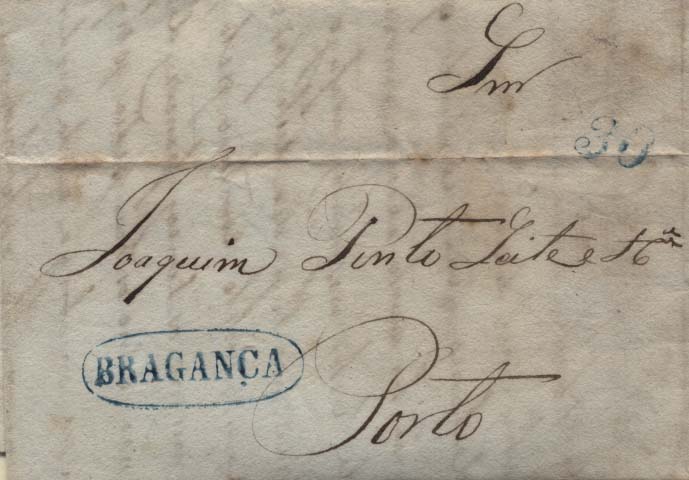 Snr
30
Joaquim Pinto Leite e
BRAGANÇA
Porto